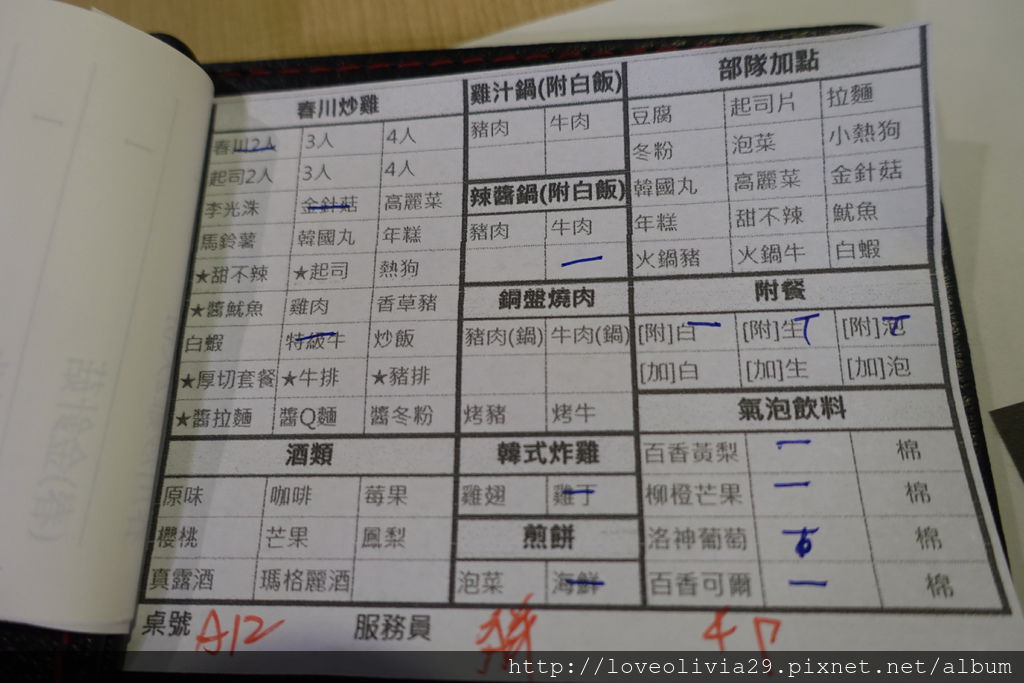 春川炒雞
春川2人 3人 4人
起司2人 3人 4人
李光洙 金針菇 高麗菜
馬鈴薯 韓國丸 年糕
★甜不辣 ★起司 熱狗
★醬魷魚 雞肉 香草豬
白蝦 特級牛 炒飯
★厚切套餐 ★牛排 ★豬排
★醬拉麵 醬Q麵 醬冬粉
酒類
原味 咖啡 莓果
櫻桃 芒果 鳳梨
真露酒 瑪格麗酒
雞汁鍋(附白飯)
豬肉 牛肉
辣醬鍋(附白飯)
豬肉 牛肉
銅盤燒肉
豬肉(鍋) 牛肉(鍋)
烤豬 烤牛
韓式炸雞
雞翅 雞丁
煎餅
泡菜 海鮮
部隊加點
豆腐 起司片 拉麵
冬粉 泡菜 小熱狗
韓國丸 高麗菜 金針菇
年糕 甜不辣 魷魚
火鍋豬 火鍋牛 白蝦
附餐
[附]白 [附]生 [附]泡
[加]白 [加]生 [加]泡
氣泡飲料
百香黃梨 棉
柳橙芒果 棉
洛神葡萄 棉
百香可爾 棉
桌號 A12 服務員
http://loveolivia29.pixnet.net/album